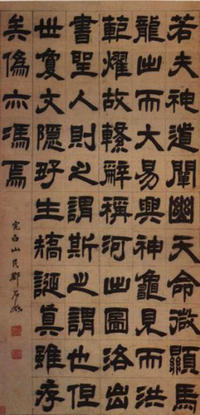 若夫神道闡幽天命微顯馬
龍出而大易興神龜見而洪
範燿故繫辭稱河出圖洛出
書聖人則之謂斯之謂也但
世敻文隱好生矯誕真雖存
矣偽亦馮焉
完白山民鄧石如